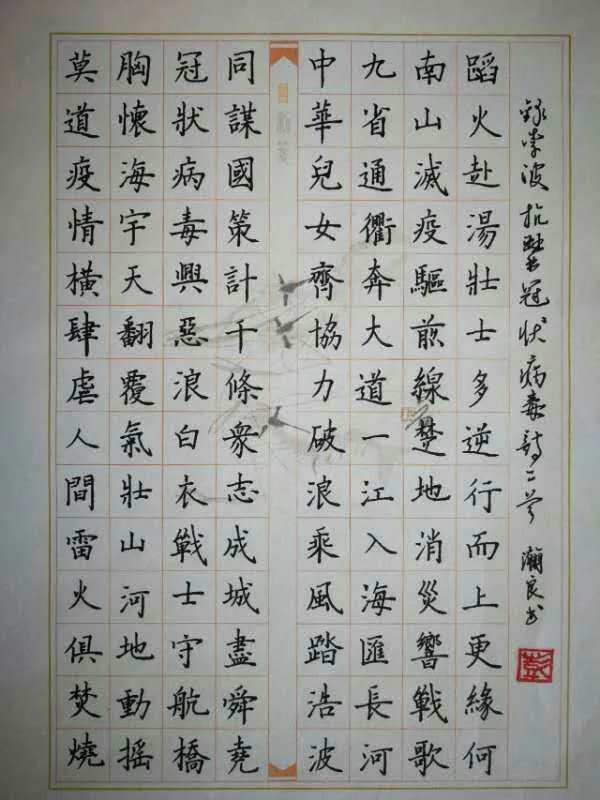 錄李波抗擊冠狀病毒詩二首 瀚良书
彭
蹈火赴湯壯士多逆行而上更緣何
南山滅疫驅前線楚地消災響戰歌
九省通衢奔大道一江入海匯長河
中華兒女齊協力破浪乘風踏浩波
同謀國策計千條衆志成城盡舜堯
冠狀病毒興惡浪白衣戰士守航橋
胸懷海宇天翻覆氣壯山河地動搖
莫道疫情橫肆虐人間雷火俱焚燒